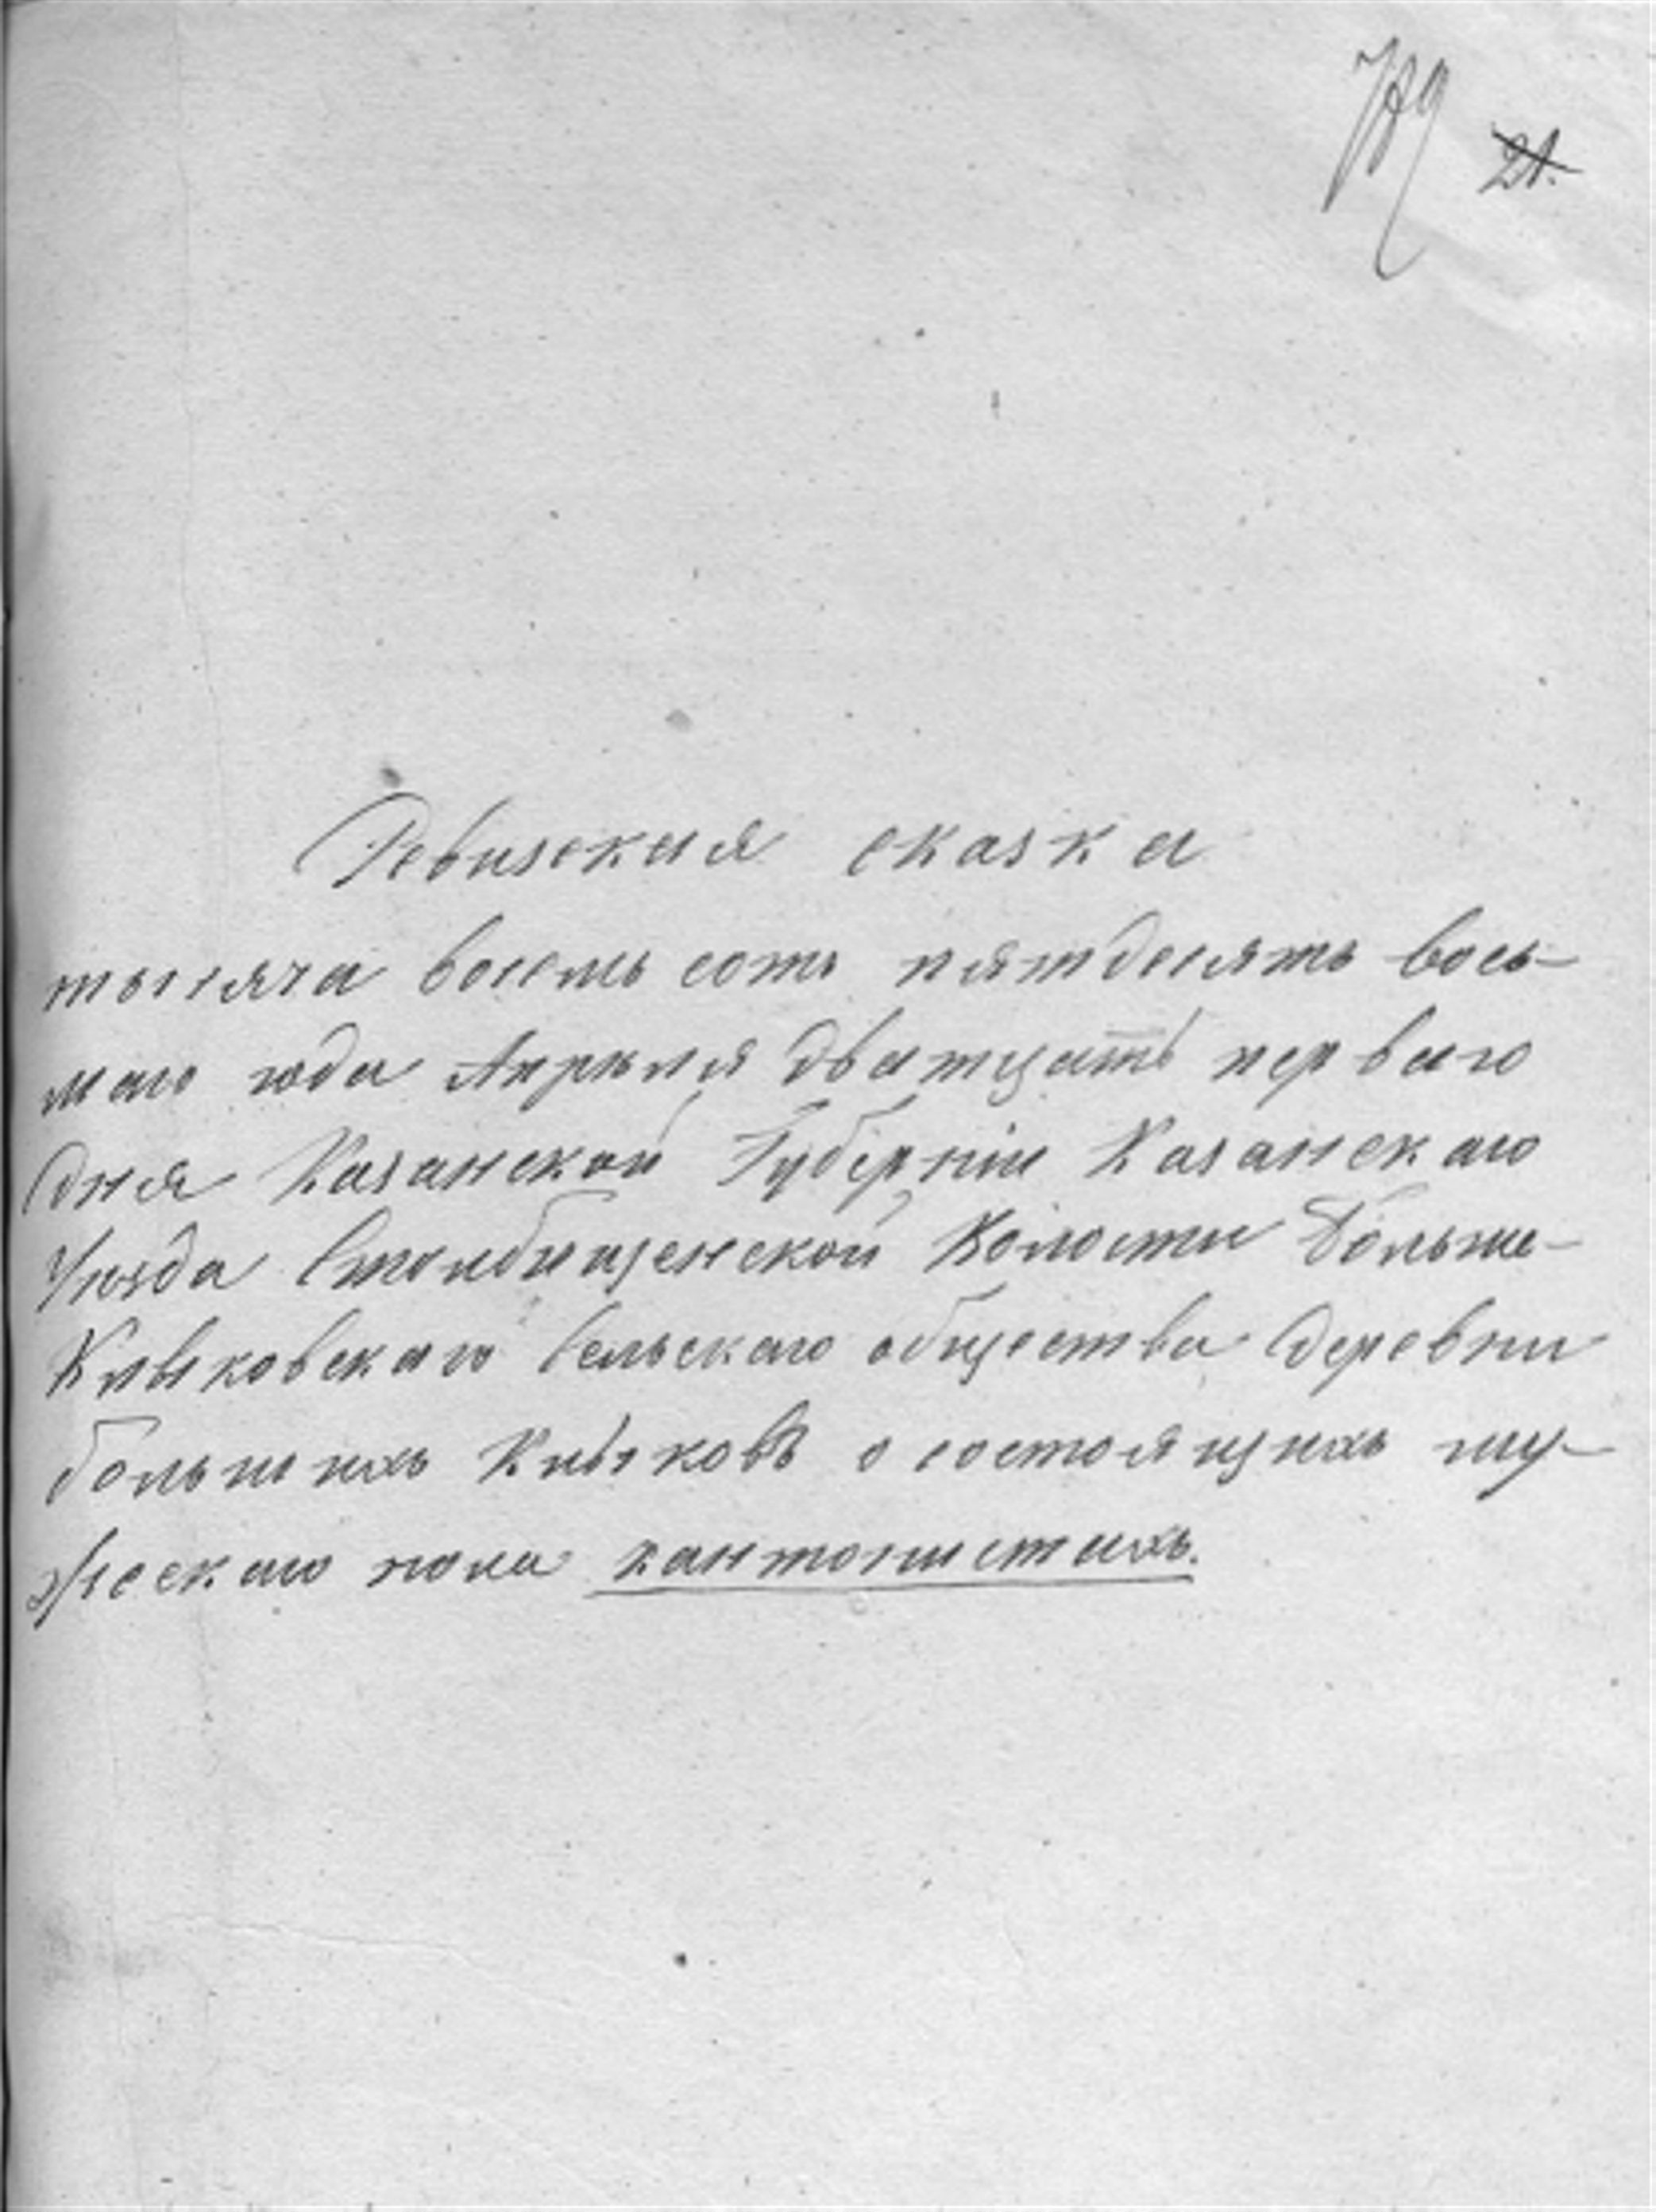 21.
Ревизская сказка
тысяча восемь сотъ пятдесятъ вось-
маго года Апрѣля дватцать перваго
дня Казанской Губерніи Казанскаго
Уѣзда Столбищенской Волости Больше-
Клыковскаго сельскаго общества деревни
большихъ Клыковъ о состоящихъ му-
жескаго пола кантонистахъ.